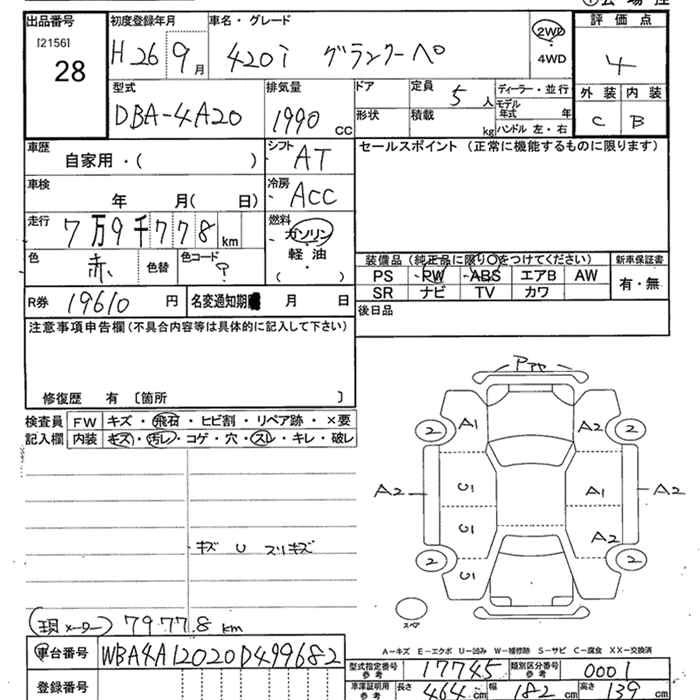 出品番号 初度登録年月 車名・グレード 評価点
[2156] H26 9月 420i グランクーペ 2WD 4WD 4
28
型式 排気量 ドア 定員 5人 ディーラー・並行 外装 内装
DBA-4A20 1990 CC 形状 積載 kg モデル年式 年 C B
ハンドル 左・右
車歴 自家用・( ) シフト AT セールスポイント (正常に機能するものに限ります)
車検 年 月( 日) 冷房 ACC
走行 7万9千778km 燃料 ガソリン
軽油
・
( )
色 赤 色替 色コード ? 装備品 (純正品に限り○をつけてください) 新車保証書
PS PW ABS エアB AW 有・無
SR ナビ TV カワ
R券 19610 円 名変通知期 月 日 後日品
注意事項申告欄(不具合内容等は具体的に記入して下さい)
修復歴 有 〔箇所 〕
検査員 FW キズ・飛石・ヒビ割・リペア跡・×要
記入欄 内装 キズ・汚レ・コゲ・穴・スレ・キレ・破レ
A1 A2
2 2
A2 U1 A1 A2
U1 A2
2 2
U1
キズ U スリキズ
スペア
(現メーター) 79778km
A-キズ E-エクボ U-凹み W-補修跡 S-サビ C-腐食 XX-交換済
車台番号 WBA4A12020D499682 型式指定番号 参考 17745 類別区分番号 参考 0001
登録番号 車庫証明用 参考 長さ 464cm 幅 182cm 高さ 139cm